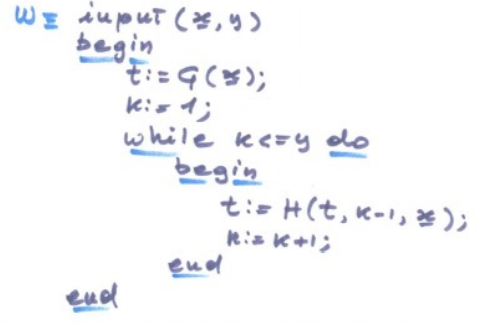 W≡ input (x, y)
begin
t:= G(x);
k:= 1;
while k<=y do
begin
t:= H(t, k-1, x);
k:= k+1;
end
end